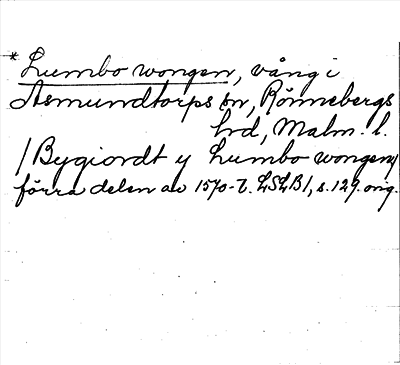 * Lumbo wongen, vång i
Asmundtorps sn, Rönnebergs
hd, Malm. l.
/Bygiordt y Lumbo wongen/
förra delen av 1570-t. LSLB1, s. 129. orig.